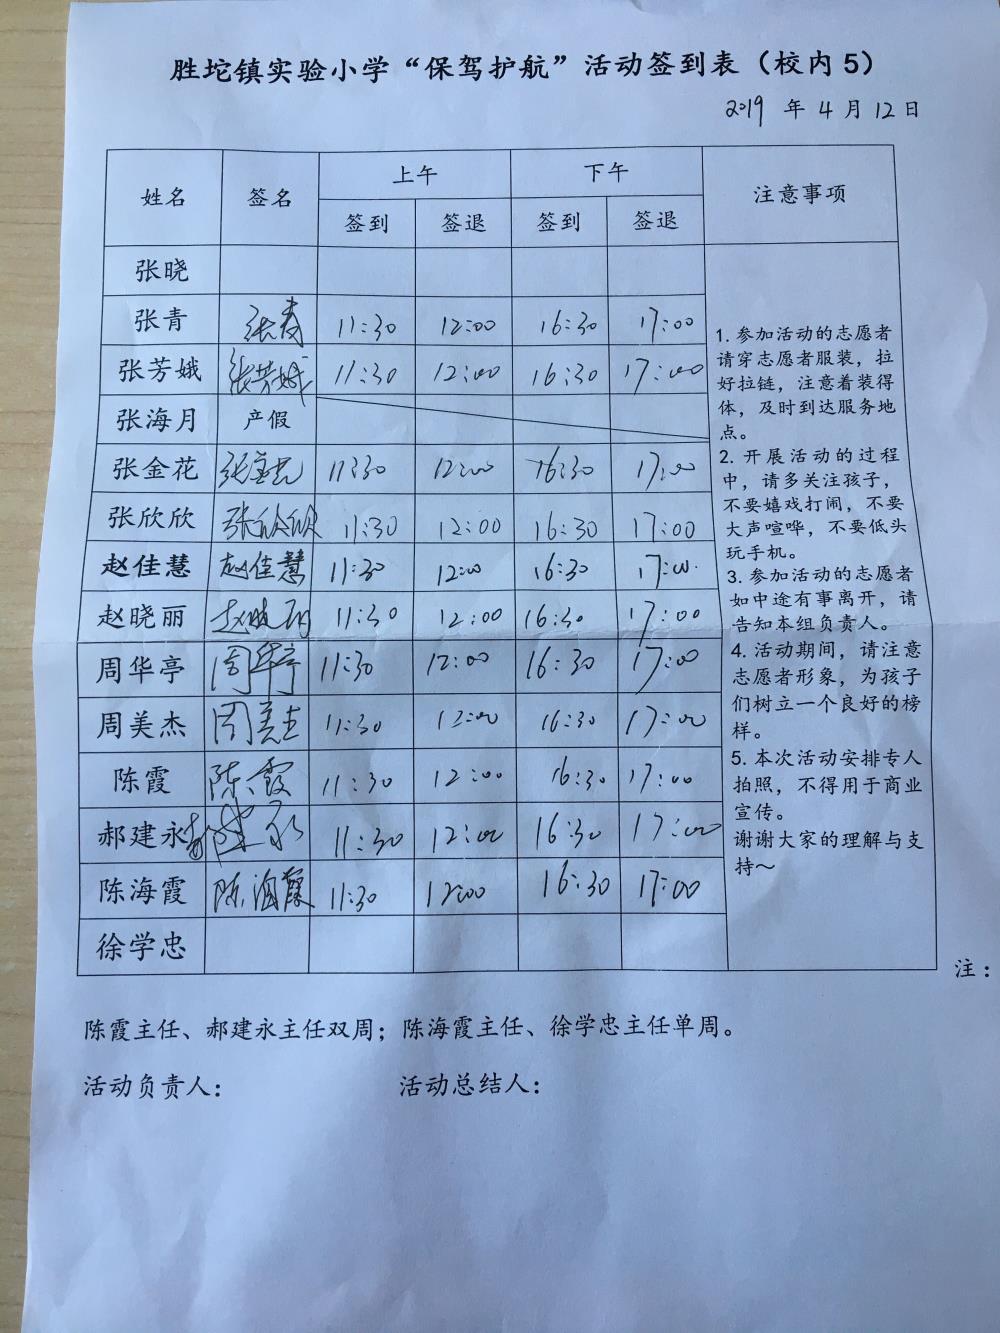 胜坨镇实验小学“保驾护航”活动签到表（校内5）
2019 年 4 月 12 日
姓名 签名 上午 下午 注意事项
签到 签退 签到 签退
张晓
张青 张青 11:30 12:00 16:30 17:00
张芳娥 张芳娥 11:30 12:00 16:30 17:00
张海月 产假
张金花 张金花 11:30 12:00 16:30 17:00
张欣欣 张欣欣 11:30 12:00 16:30 17:00
赵佳慧 赵佳慧 11:30 12:00 16:30 17:00
赵晓丽 赵晓丽 11:30 12:00 16:30 17:00
周华亭 周华亭 11:30 12:00 16:30 17:00
周美杰 周美杰 11:30 12:00 16:30 17:00
陈霞 陈霞 11:30 12:00 16:30 17:00
郝建永 郝建永 11:30 12:00 16:30 17:00
陈海霞 陈海霞 11:30 12:00 16:30 17:00
徐学忠
1. 参加活动的志愿者
请穿志愿者服装，拉
好拉链，注意着装得
体，及时到达服务地
点。
2. 开展活动的过程
中，请多关注孩子，
不要嬉戏打闹，不要
大声喧哗，不要低头
玩手机。
3. 参加活动的志愿者
如中途有事离开，请
告知本组负责人。
4. 活动期间，请注意
志愿者形象，为孩子
们树立一个良好的榜
样。
5. 本次活动安排专人
拍照，不得用于商业
宣传。
谢谢大家的理解与支
持～
注：
陈霞主任、郝建永主任双周；陈海霞主任、徐学忠主任单周。
活动负责人： 活动总结人：